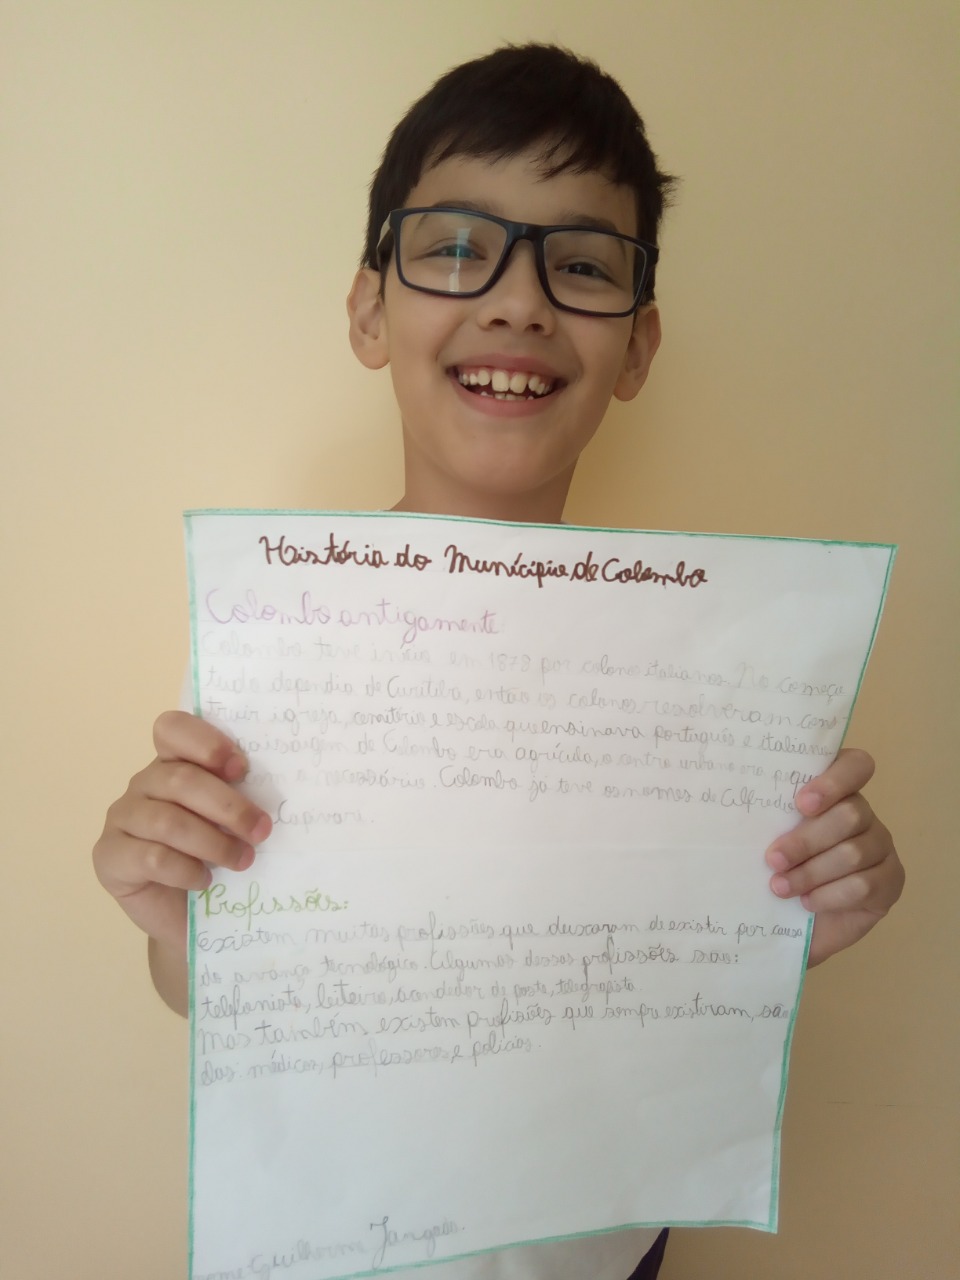 História do Munícipio de Colombo
Colombo antigamente:
Colombo teve início em 1878 por colonos italianos. No começo
tudo dependia de Curitiba, então os colonos resolveram cons-
truir igreja, cemitério e escola que ensinava português e italiano.
paisagem de Colombo era agrícula, o centro urbano era peque
com o necessário. Colombo já teve os nomes de Alfredo
Capivari.
Profissões:
Existem muitas profissões que deixaram de existir por causa
do avanço tecnológico. Algumas dessas profissões são:
telefonista, leiteiro, acendedor de poste, telegrapista.
Mas também existem profisões que sempre existiram, são
elas: médicos, professores, e polícias.
nome Guilherme